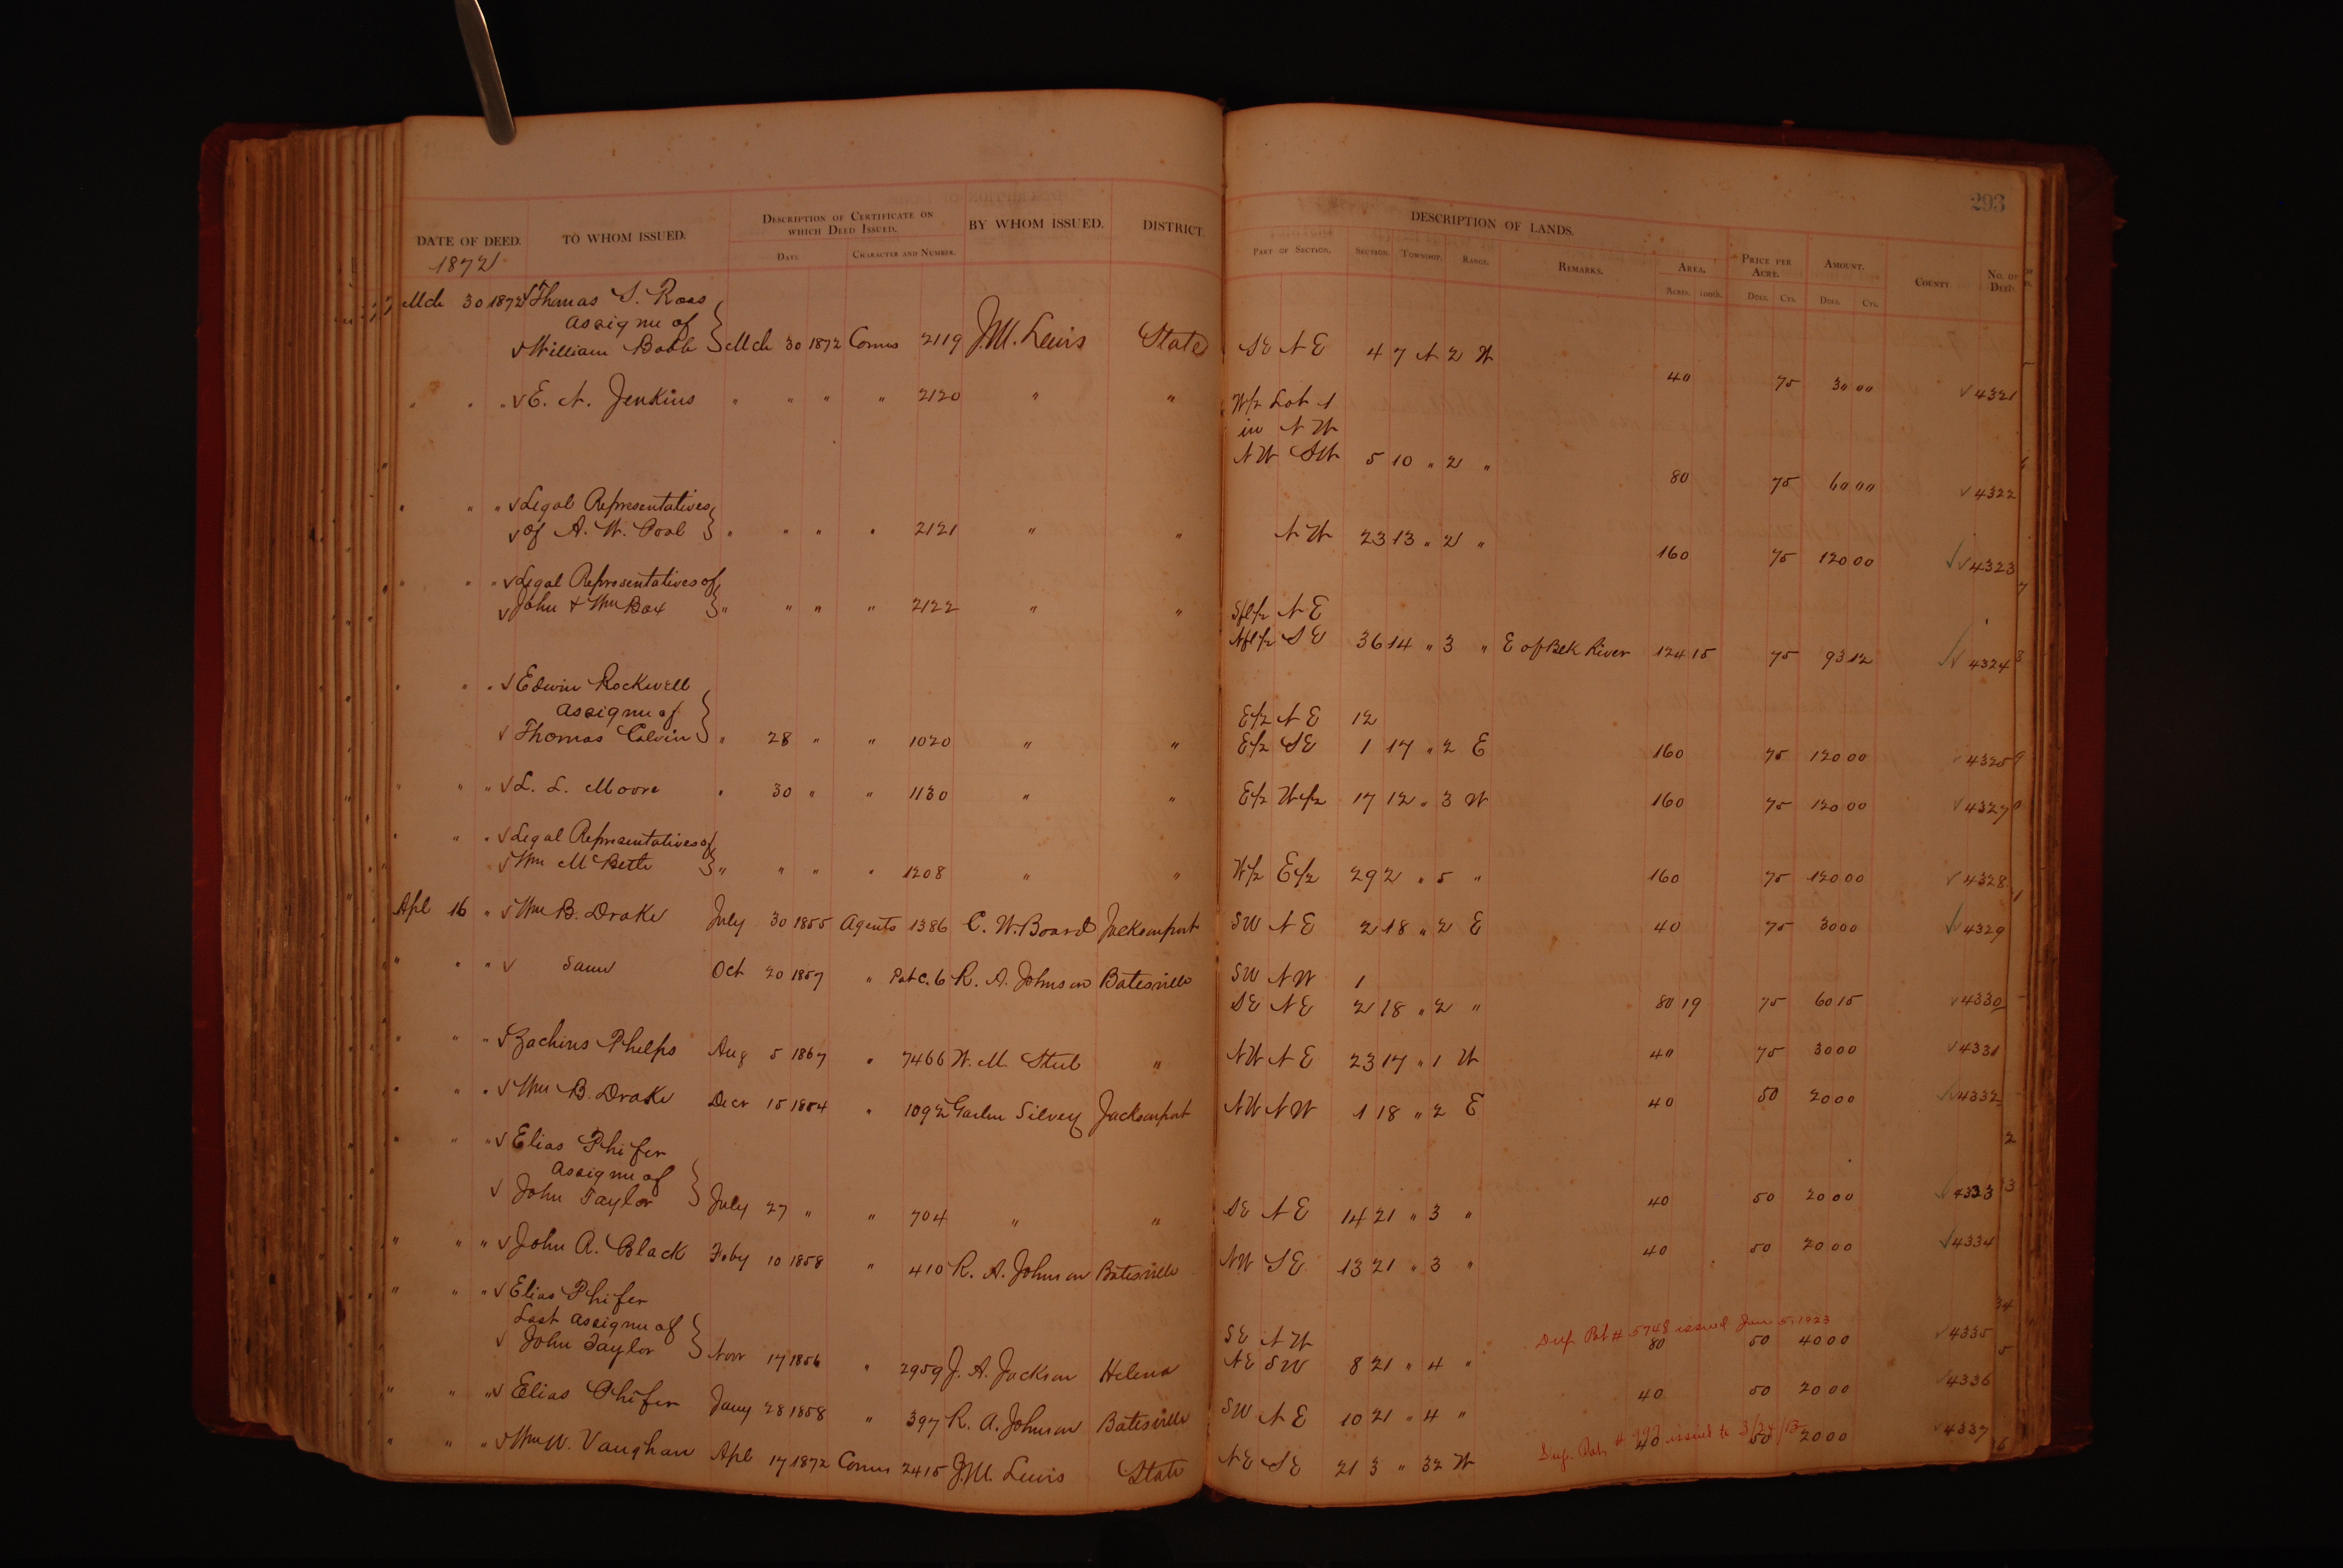 293
DATE OF DEED. TO WHOM ISSUED. DESCRIPTION OF CERTIFICATE ON WHICH DEED ISSUED. BY WHOM ISSUED. DISTRICT. DESCRIPTION OF LANDS. PRICE PER ACRE. AMOUNT. COUNTY NO. OF DEED.
DATE CHARACTER AND NUMBER. PART OF SECTION. SECTION. TOWNSHIP. RANGE. REMARKS. AREA. ACRES. DOLS. CTS. DOLS. CTS.
1872
Mch 30 1872 √ Thomas S. Ross
assignee of
√ William Babb } Mch 30 1872 Comrs 2119 J.M. Lewis State SE NE 4 7 N 2 W 40 75 30 00 √ 4321
" " " √ E. N. Jenkins " " " " 2120 " " W/2 Lot 1
in N W
NW SW 5 10 " 2 " 80 75 60 00 √ 4322
" " " √ Legal Representatives
√ of A. W. Pool } " " " " 2121 " " N W 23 13 " 2 " 160 75 120 00 √√ 4323
" " " √ Legal Representatives of
√ John & Wm Box } " " " " 2122 " " Sfl/2 NE
Nfl/2 SE 36 14 " 3 " E of Blk River 124 15 75 93 12 √√ 4324
" " " √ Edwin Rockwell
assignee of
√ Thomas Calvin } " 28 " " 1020 " " E/2 NE 12
E/2 SE 1 17 " 2 E 160 75 120 00 √ 4325
" " " √ L. L. Moore " 30 " " 1130 " " E/2 W/2 17 12 " 3 W 160 75 120 00 √ 4327
" " " √ Legal Representatives of
√ Wm McBeth } " " " " 1208 " " W/2 E/2 29 2 " 5 " 160 75 120 00 √ 4328
Apl 16 " √ Wm B. Drake July 30 1855 Agents 1386 C. W. Board Jacksonport SW NE 2 18 " 2 E 40 75 30 00 √ 4329
" " " √ Same Oct 20 1857 " Pat C. 6 R. A. Johnson Batesville SW NW 1
SE NE 2 18 " 2 " 80 19 75 60 15 √ 4330
" " " √ Zachius Phelps Aug 5 1867 " 7466 W. M. Steel " NW NE 23 17 " 1 W 40 75 30 00 √ 4331
" " " √ Wm B. Drake Decr 15 1854 " 1092 Garlen Silvey Jacksonport NW NW 1 18 " 2 E 40 50 20 00 √√ 4332
" " " √ Elias Phifer
assignee of
√ John Taylor } July 27 " " 704 " " SE NE 14 21 " 3 " 40 50 20 00 √ 4333
" " " √ John A. Black Feby 10 1858 " 410 R. A. Johnson Batesville NW SE 13 21 " 3 " 40 50 20 00 √ 4334
" " " √ Elias Phifer
Last assignee of
√ John Taylor } Novr 17 1856 " 2959 J. A. Jackson Helena SE NW
Dup. Pat # 5748 issued Jun 5, 1923
NE SW 8 21 " 4 " 80 50 40 00 √ 4335
" " " √ Elias Phifer Jany 28 1858 " 397 R. A. Johnson Batesville SW NE 10 21 " 4 " 40 50 20 00 √ 4336
Dup. Pat. issued to
" " " √ Wm W. Vaughan Apl 17 1872 Comrs 2415 J.M. Lewis State NE SE 21 3 " 32 W 40 50 20 00 √ 4337